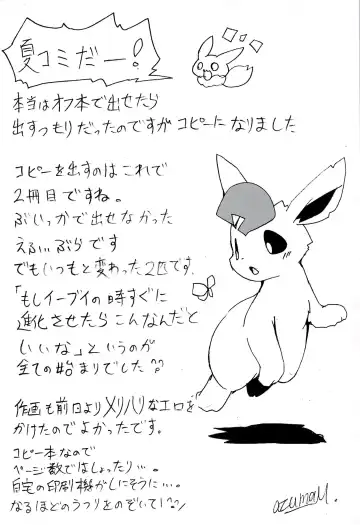 夏コミだー!
本当はオフ本で出せたら
出すつもりだったのですがコピーになりました
コピーを出すのはこれで
2冊目ですね。
ぶいっかで出せなかった
えふぃぶらです
でもいつもと変わった2匹です。
「もしイーブイの時すぐに
進化させたらこんなんだと
いいな」というのが
全ての始まりでした
作画も前日よりメリハリなエロを
かけたのでよかったです。
コピー本なので
ページ数ではしょったり…。
自宅の印刷機がしにそうに…。
なるほどのうつりをのぞいて!
azumaM.